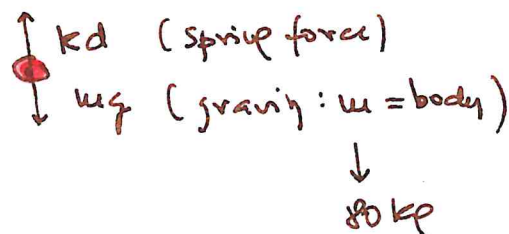 kd (spring force)
mg (gravity: m = body)
80 kg